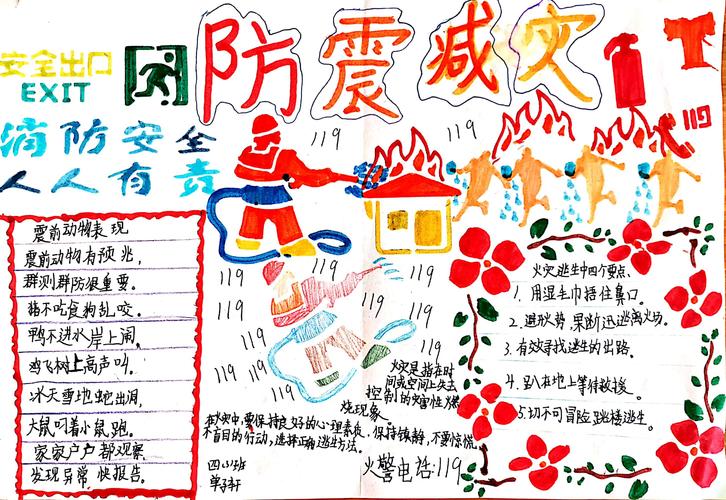 防震减灾
安全出口
EXIT
消防安全
人人有责
119
119
119
震前动物表现
震前动物有预兆，
群测群防很重要。
猪不吃食狗乱咬。
鸭不进水岸上闹，
鸡飞树上高声叫。
冰天雪地蛇出洞，
大鼠叼着小鼠跑。
家家户户都观察，
发现异常快报告。
119
119
119
119
119
119
119
119
119
火灾是指在时
间或空间上失去
控制的灾害性燃
烧现象。
在火灾中，要保持良好的心理素质，保持镇静，不要惊慌
不盲目的行动，选择正确逃生方法。
四
班
火警电话：119
火灾逃生中四个要点、
1.用湿毛巾捂住鼻口。
2.避开火势，果断迅速逃离火场。
3.有效寻找逃生的出路。
4.趴在地上等待救援。
5.切不可冒险跳楼逃生。